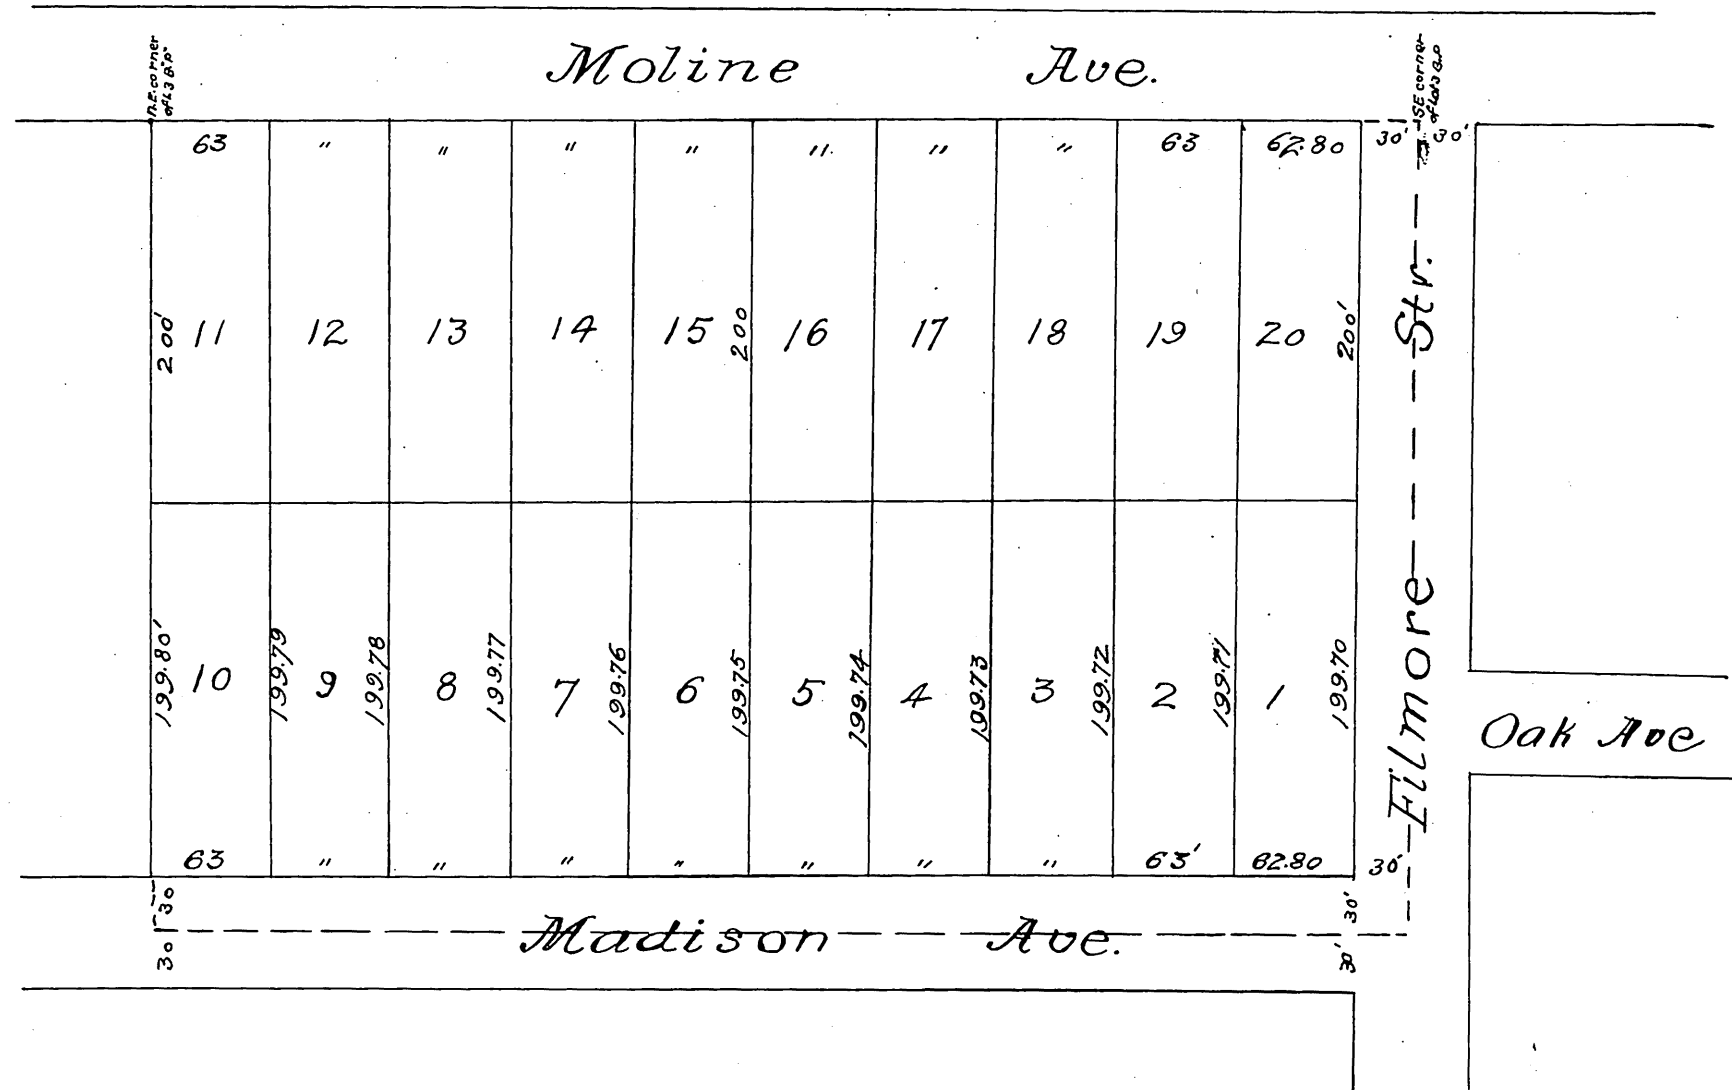 Moline Ave.
N.E. corner
of L 3 B.P.
SE corner
of Lot 3 B.P.
63 " " " " " " " 63 62.80 30' 30'
200' 11 12 13 14 15 200 16 17 18 19 20 200'
Filmore Str.
199.80' 10 199.79 9 199.78 8 199.77 7 199.76 6 199.75 5 199.74 4 199.73 3 199.72 2 199.71 1 199.70
Oak Ave
63 " " " " " " " 63' 62.80 30'
30 30'
Madison Ave.
30 30'